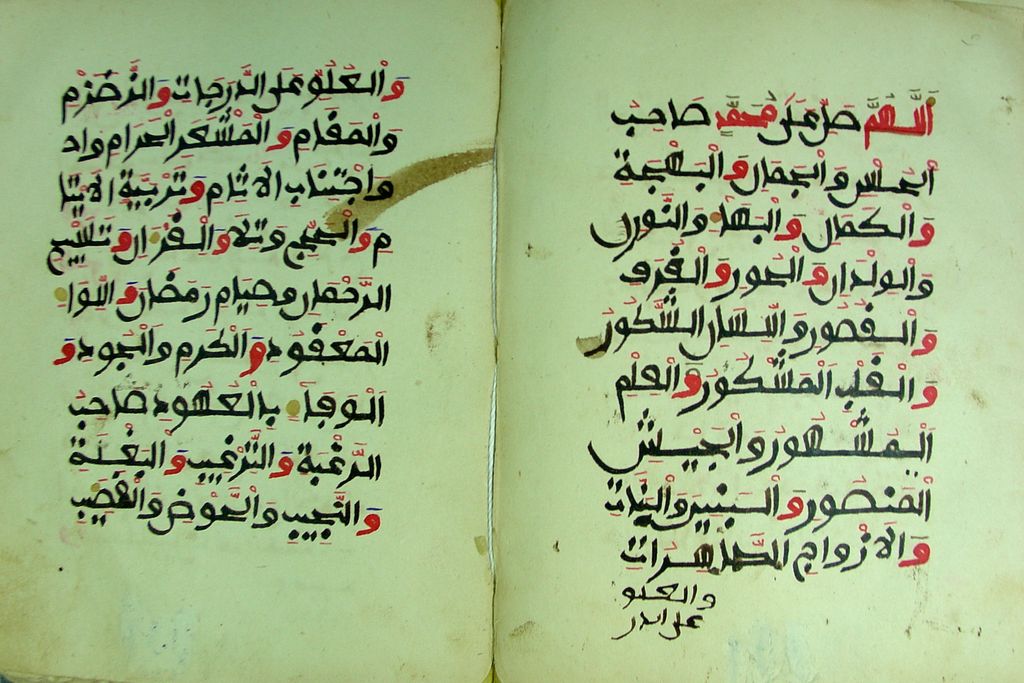 اللهم صل على محمد صاحب
الحسن والجمال والبهجة
والكمال والبهاء والنور
والولدان والحور والغرف
والقصور واللسان الشكور
والقلب المشكور والعلم
المشهور والجيش
المنصور والبنين والبنات
والازواج الطاهرات
والعلو
على الدر
والعلو على الدرجات والزمزم
والمقام والمشعر الحرام واد
واجتناب الاثام وتربية الايتا
م والحج وتلا والقران وتسبيح
الرحمان وصيام رمضان واللواء
المعقود والكرم والجود و
الوفاء بالعهود صاحب
الرغبة والترغيب والبغلة
والنجيب والحوض والقضيب